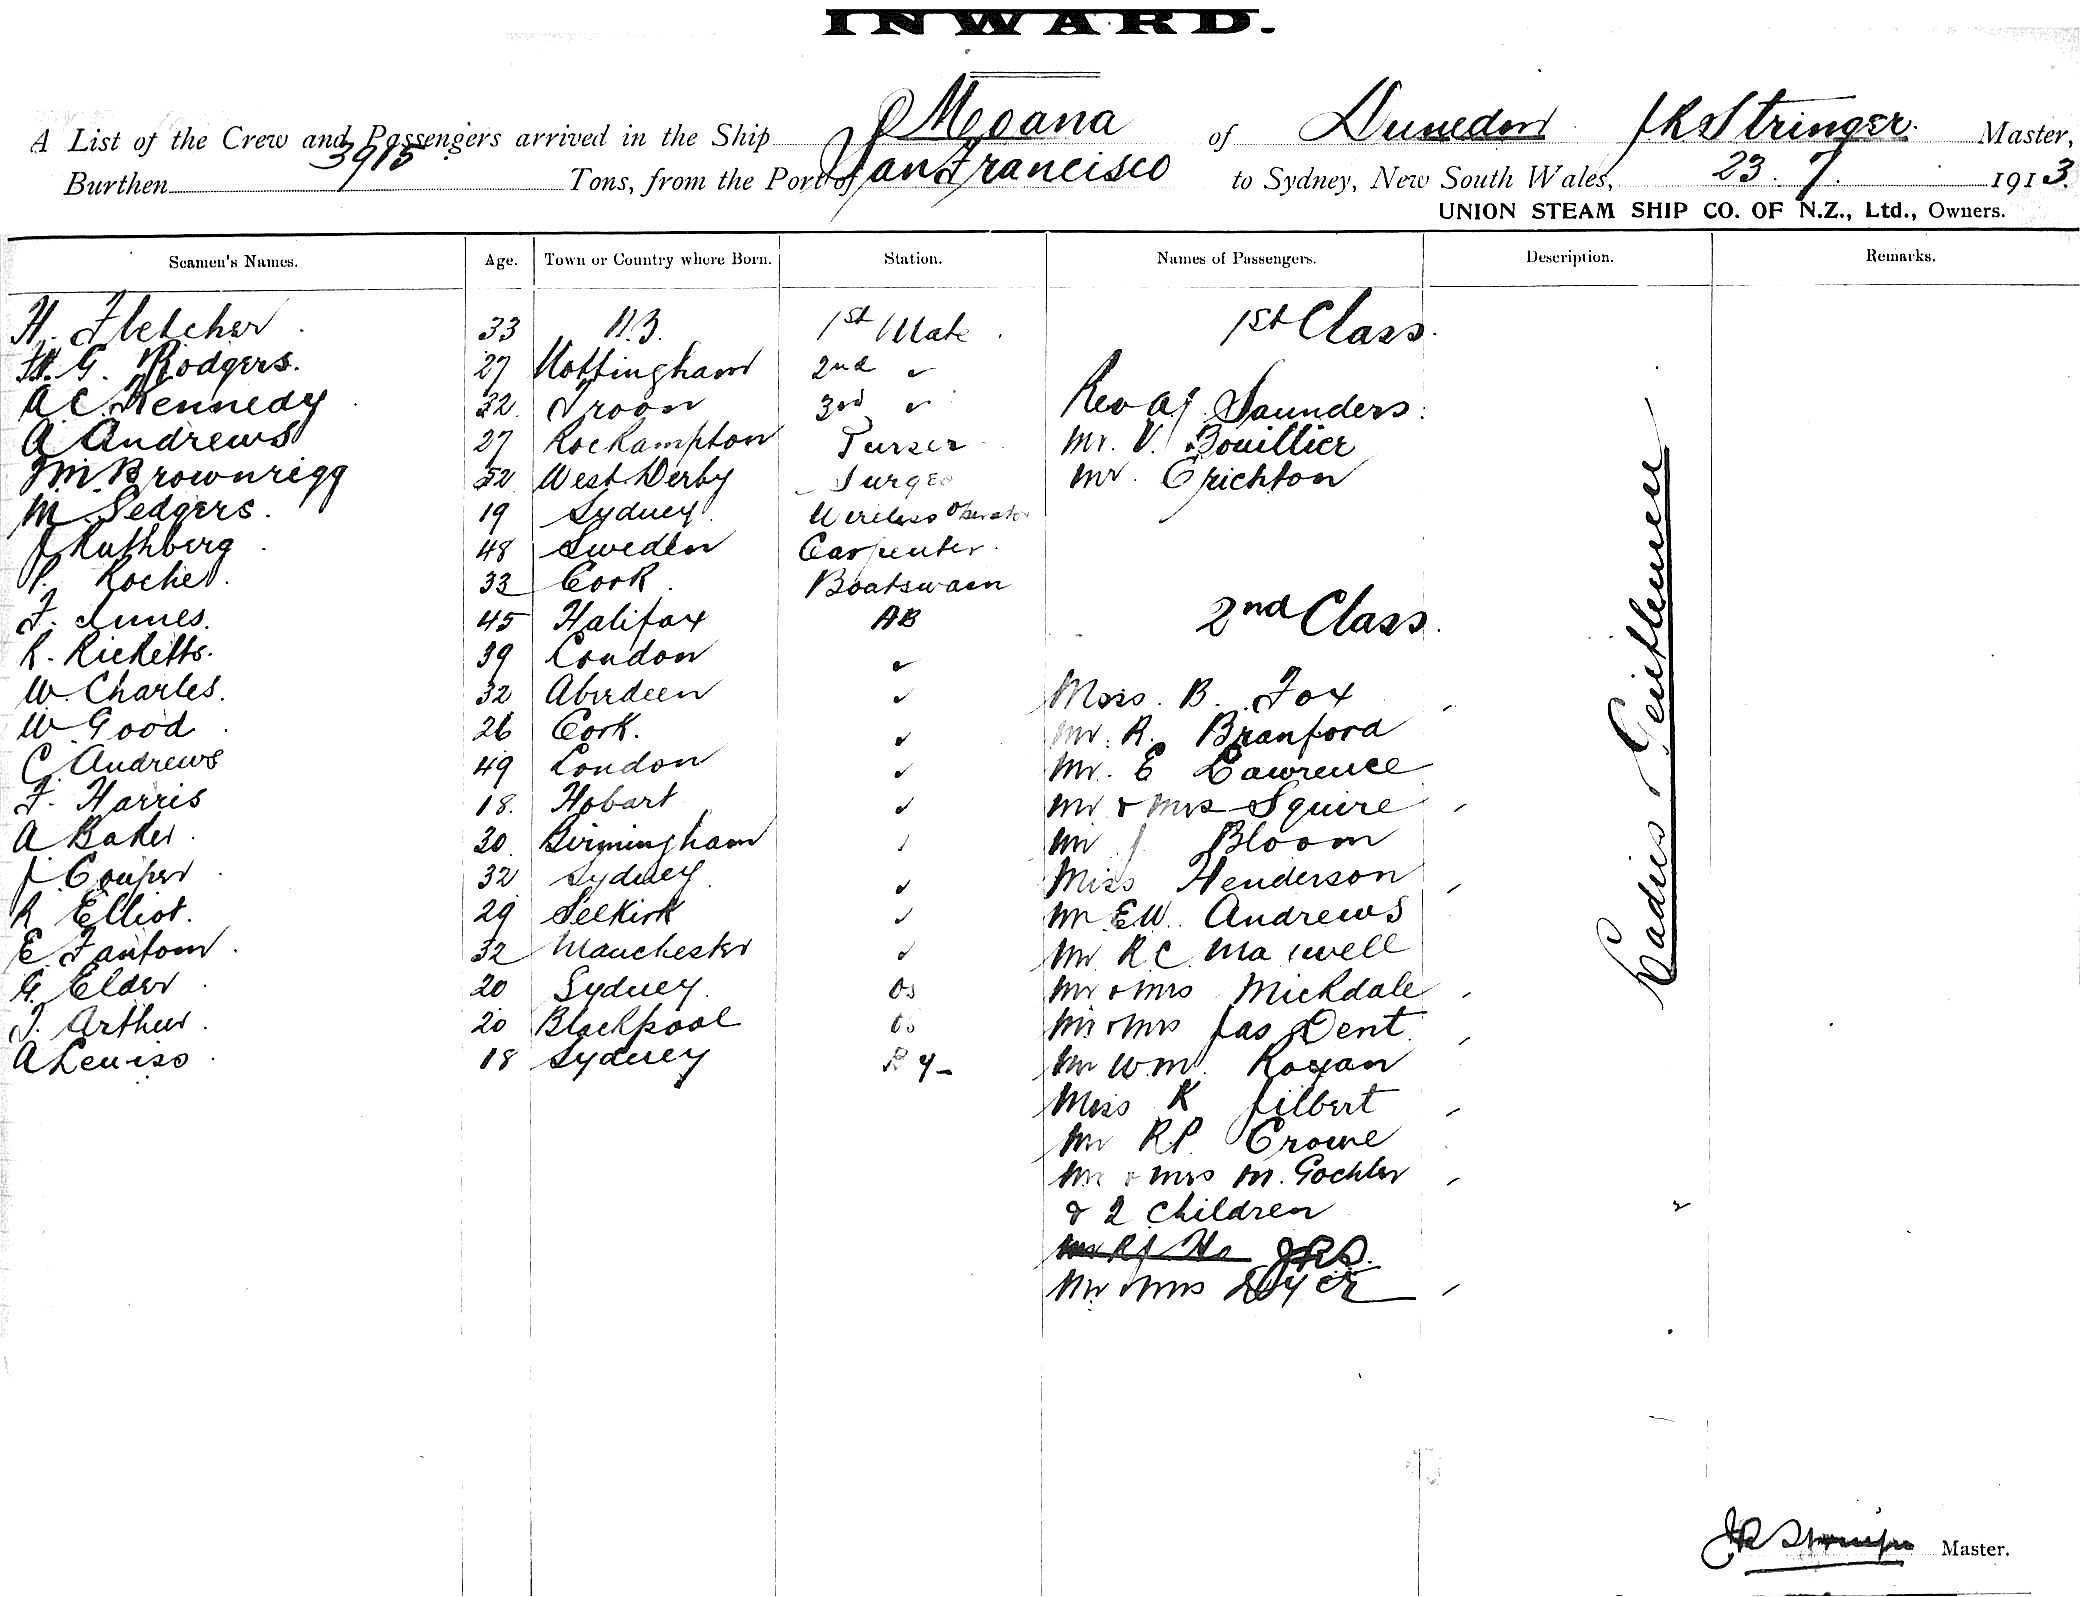 INWARD.
A List of the Crew and Passengers arrived in the Ship Moana of Dunedin J R Stringer. Master,
Burthen 3915 Tons, from the Port of San Francisco to Sydney, New South Wales, 23. 7. 1913.
UNION STEAM SHIP CO. OF N.Z., Ltd., Owners.
Seamen's Names. Age. Town or Country where Born. Station. Names of Passengers. Description. Remarks.
H. Fletcher 33 N.Z. 1st Mate
G. Rodgers. 27 Nottingham 2nd "
A C Kennedy 32 Troon 3rd "
A Andrews 27 Rockampton Purser
Brownrigg 52 West Derby Surgeo
M Sedgers. 19 Sydney Wireless Operator
J Ruthberg 48 Sweden Carpenter
P. Roche 33 Cork Boatswain
F. Innes. 45 Halifax AB
R. Ricketts. 39 London "
W Charles. 32 Aberdeen "
W Good 26 Cork. "
C Andrews 49 London "
F. Harris 18. Hobart "
A Baker 30 Birmingham "
J Couper 32 Sydney "
R Elliot. 29 Selkirk "
E. Fantom 32 Manchester "
G. Elder 20 Sydney. OS
J. Arthur 20 Blackpool OS
A Lewiss 18 Sydney
1st Class.
Rev A J Saunders.
Mr. V. Bouillier
Mr. Crichton
2nd Class.
Miss. B. Fox
Mr. R. Branford
Mr. E Lawrence
Mr & Mrs Squire
Mr J Bloom
Miss Henderson
Mr E W. Andrews
Mr R C. Maxwell
Mr & Mrs Mickdale
Mr & Mrs Jas Dent.
Mr Wm. Roxan
Miss K Gilbert
Mr R P. Crowe
Mr & Mrs M. Gochler
& 2 children
Mr R J Ho J.R.S.
Mr & Mrs Dyer
Ladies & Gentlemen
J R Stringer Master.